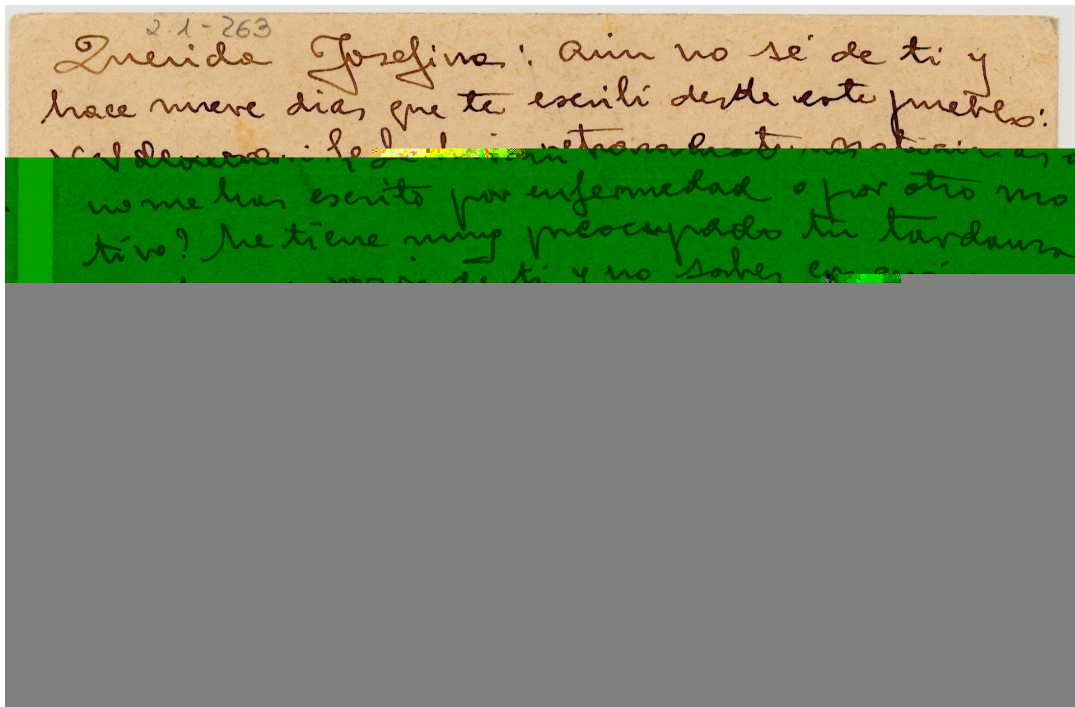 2.1-263
Querida Josefina: Aún no sé de ti y
hace nueve dias que te escribí desde este pueblo:
no me has escrito por enfermedad o por otro mo
tivo? Me tiene muy preocupado tu tardanza
de ti y no saber en qué